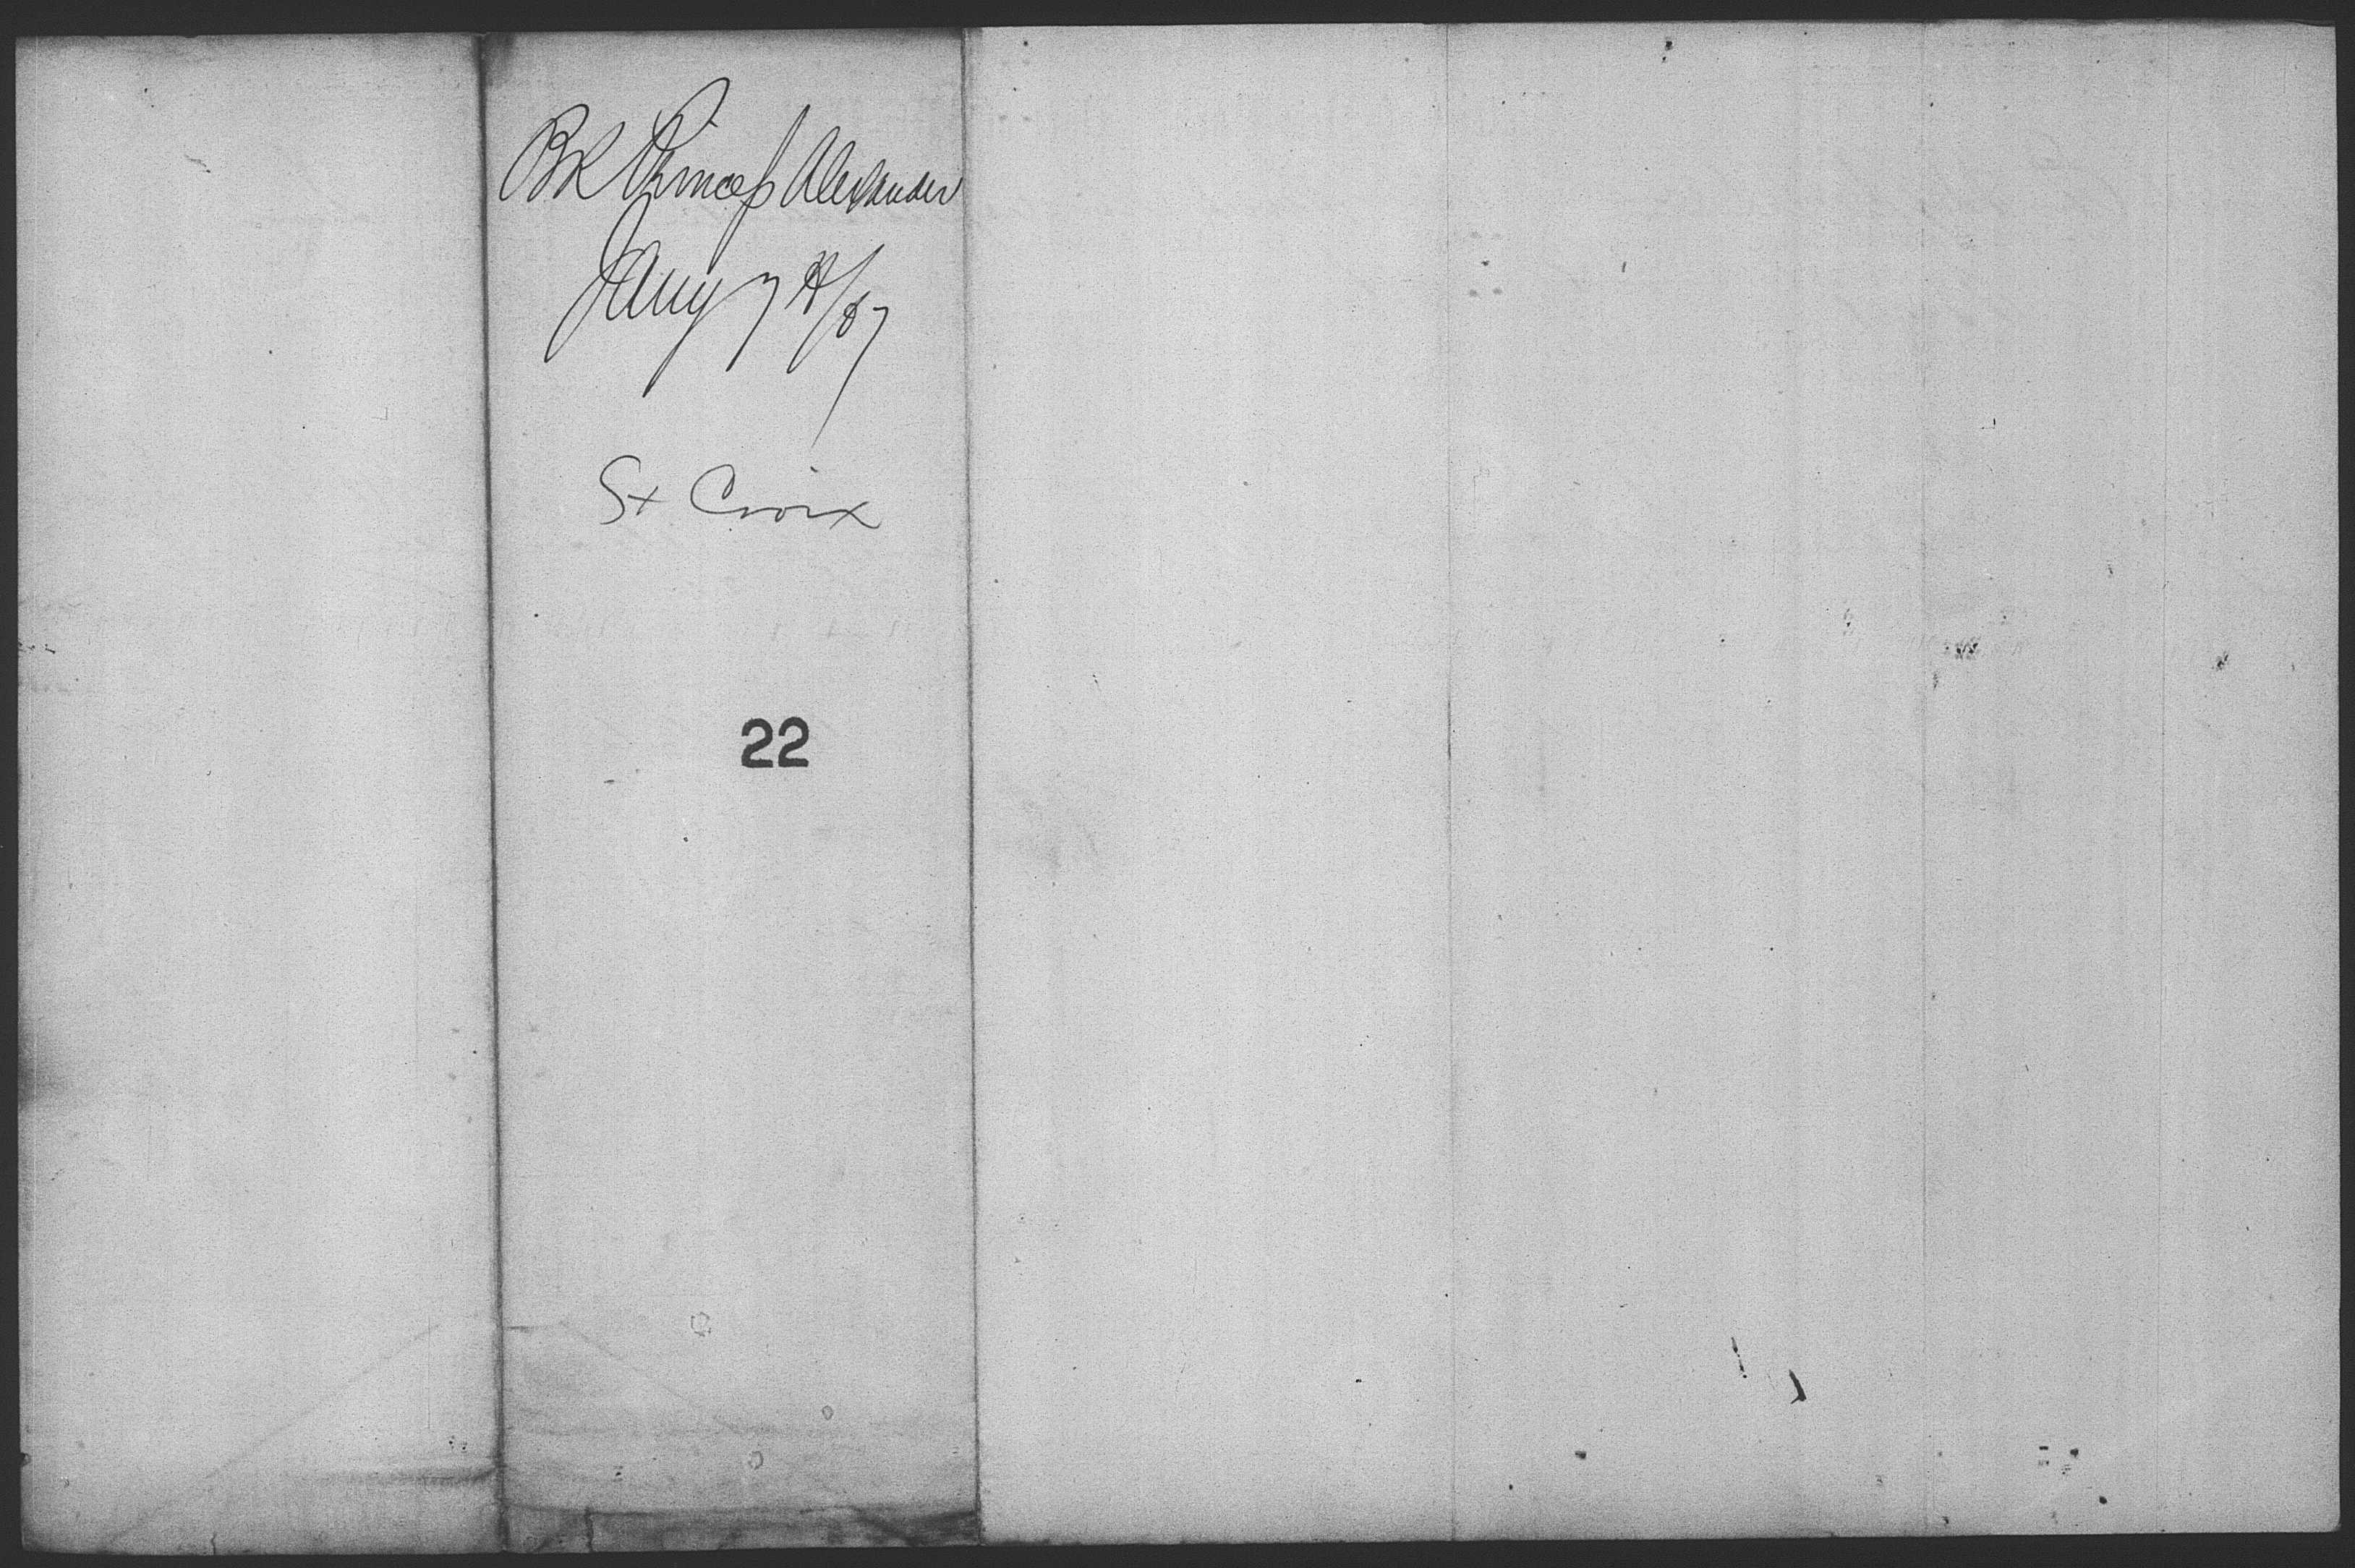 Bk Princess Alexander
Jany 7th/87
St Croix
22